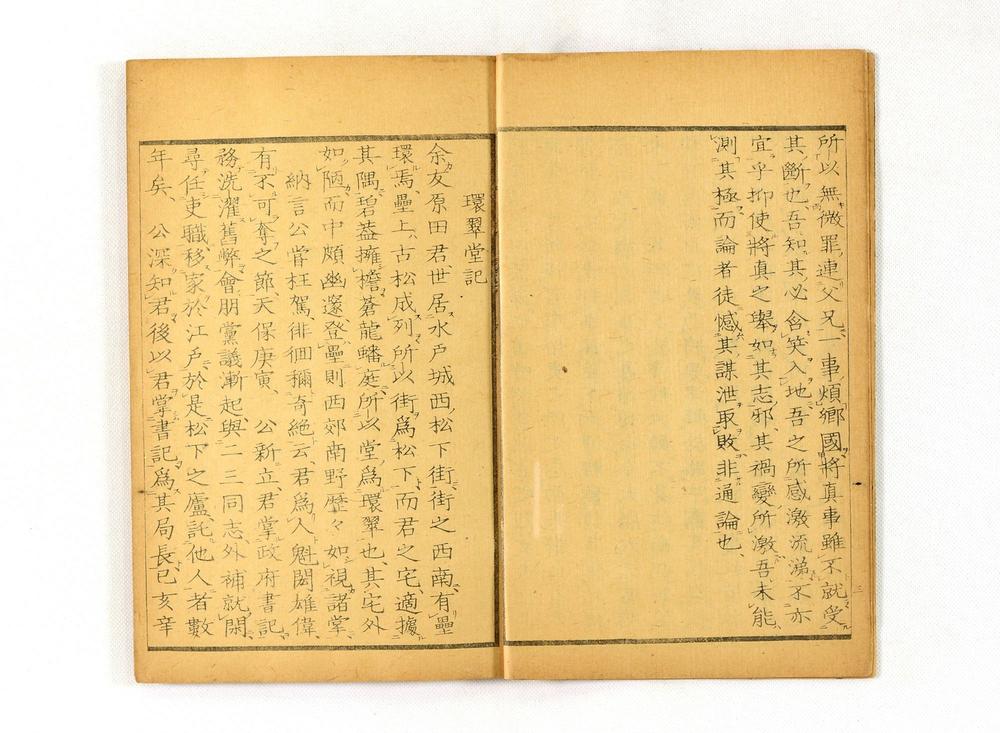 所以無微罪連父兄一事煩鄉國將真事雖不就受
其斷也吾知其必含笑入地吾之所感激流涕不亦
宜乎抑使將真之舉如其志邪其禍變所激吾未能
測其極而論者徒憾其謀泄取敗非通論也
環翠堂記
余友原田君世居水戶城西松下街街之西南有壘
環焉壘上古松成列所以街為松下而君之宅適據
其隅碧蓋擁檐蒼龍蟠庭所以堂為環翠也其宅外
如陋而中頗幽邃登壘則西郊南野歷々如視諸掌
納言公嘗枉駕徘徊稱奇絕云君為人魁閎雄偉
有不可奪之節天保庚寅公新立君掌政府書記
務洗濯舊弊會朋黨議漸起與二三同志外補就閑
尋任吏職移家於江戶於是松下之廬託他人者數
年矣公深知君後以君掌書記為其局長已亥辛